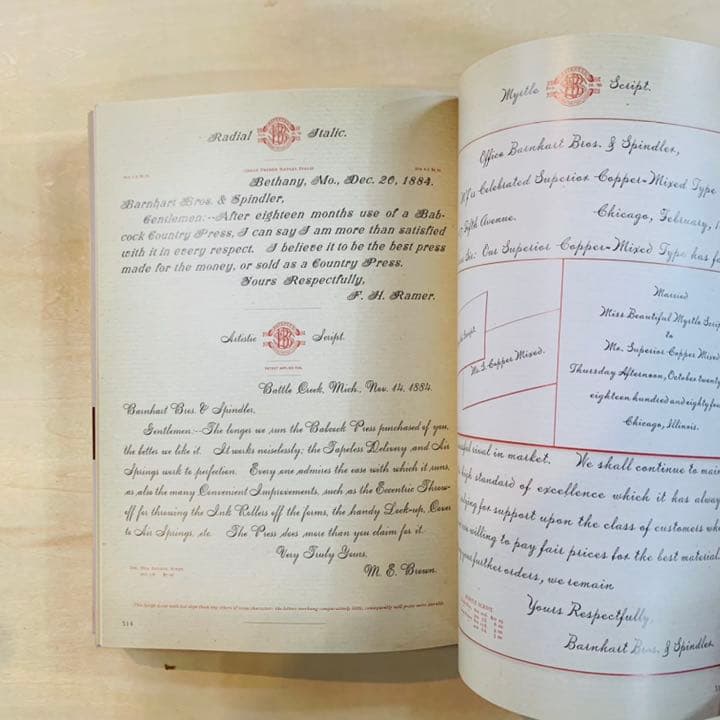 Radial Italic.
Bethany, Mo., Dec. 20, 1884.
Barnhart Bros. & Spindler,
Gentlemen:--After eighteen months use of a Bab-
cock Country Press, I can say I am more than satisfied
with it in every respect. I believe it to be the best press
made for the money, or sold as a Country Press.
Yours Respectfully,
F. H. Ramer.
Artistic Script.
PATENT APPLIED FOR.
Battle Creek, Mich., Nov. 14, 1884.
Barnhart Bros. & Spindler,
Gentlemen:--The longer we run the Babcock Press purchased of you,
the better we like it. It works noiselessly; the Tapeless Delivery and Air
Springs work to perfection. Every one admires the ease with which it runs,
as also the many Convenient Improvements, such as the Eccentric Throw-
off for throwing the Ink Rollers off the forms, the handy Lock-up, Cover
to Air Springs, etc. The Press does more than you claim for it.
Very Truly Yours,
M. E. Brown.
514
Myrtle Script.
Office Barnhart Bros. & Spindler,
a Celebrated Superior Copper-Mixed Type
Fifth Avenue.
Chicago, February, 1
Our Superior Copper-Mixed Type has
Script.
Mr. S. Copper Mixed.
Married
Miss Beautiful Myrtle Script
to
Mr. Superior Copper Mixed
Thursday Afternoon, October twenty
eighteen hundred and eighty four
Chicago, Illinois.
rival in market. We shall continue to main
high standard of excellence which it has alway
for support upon the class of customers who
willing to pay fair prices for the best material.
further orders, we remain
Yours Respectfully,
Barnhart Bros. & Spindler.
MYRTLE SCRIPT.